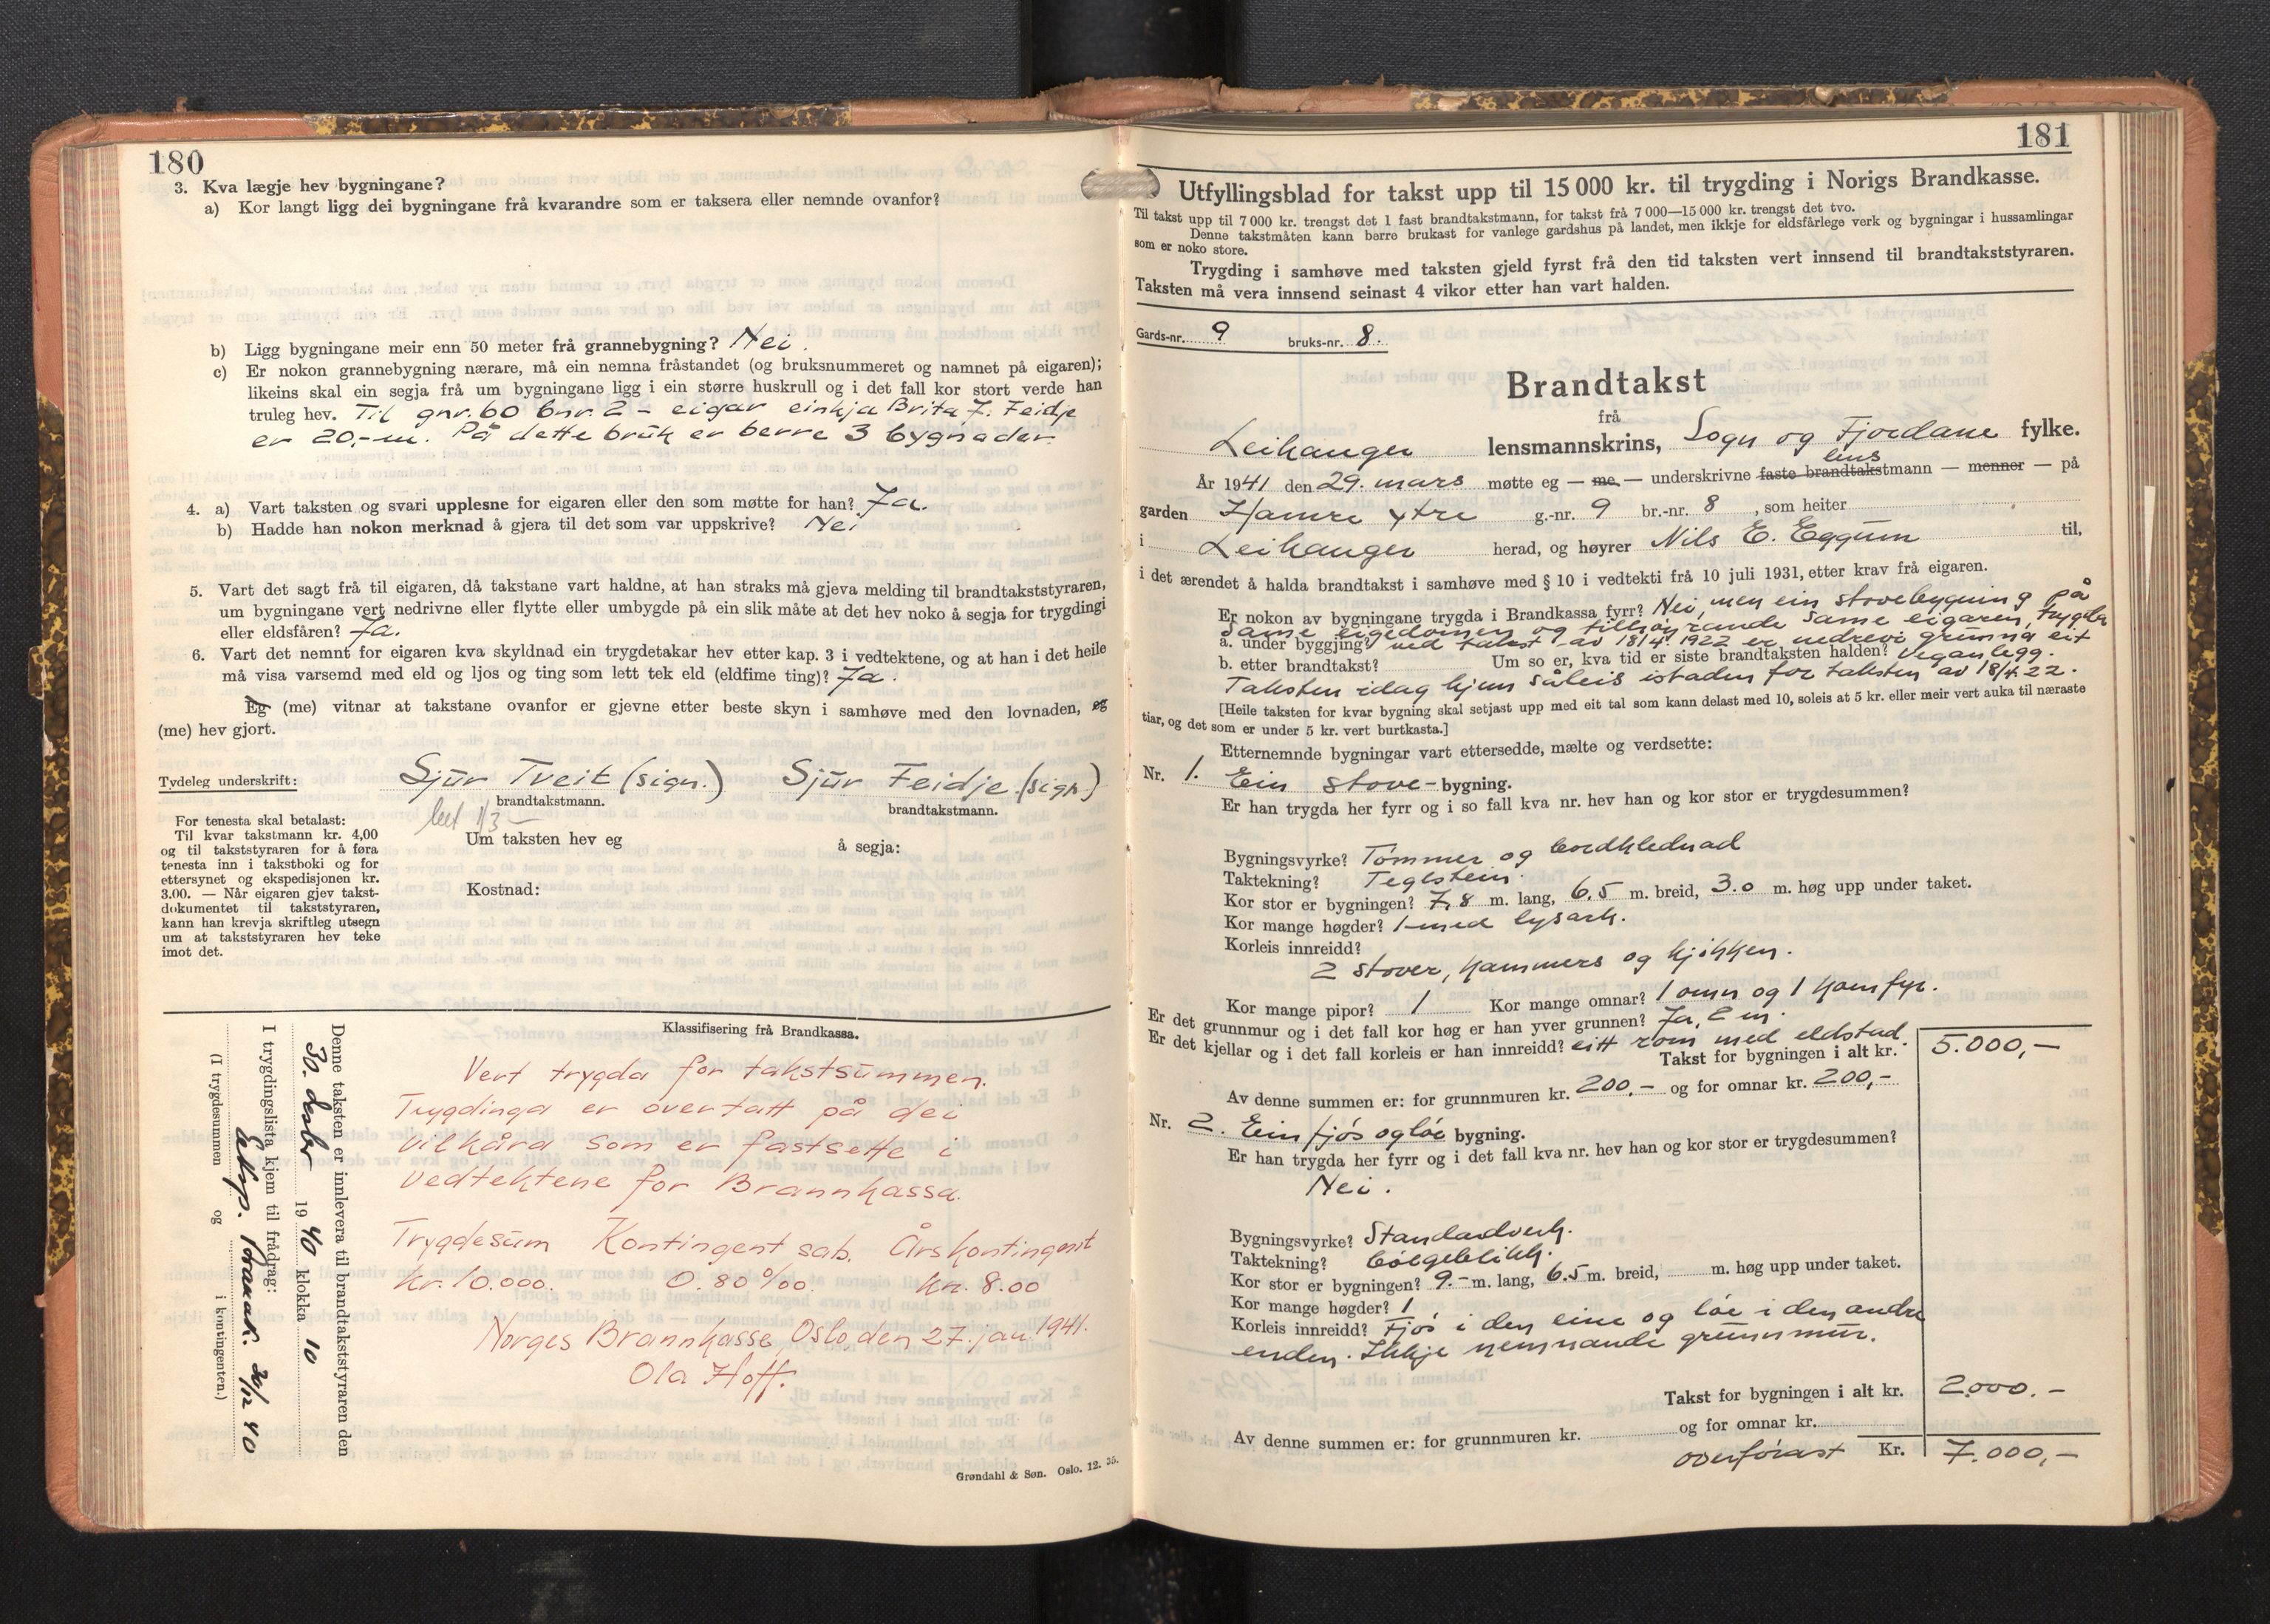 180
3. Kva lægje hev bygningane?
a) Kor langt ligg dei bygningane frå kvarandre som er taksera eller nemnde ovanfor?
b) Ligg bygningane meir enn 50 meter frå grannebygning? Nei.
c) Er nokon grannebygning nærare, må ein nemna fråstandet (og bruksnummeret og namnet på eigaren);
likeins skal ein segja frå um bygningane ligg i ein større huskrull og i det fall kor stort verde han
truleg hev. Til gnr. 60 bnr. 2 - eigar einkja Brita J. Feidje
er 20,- m. På dette bruk er berre 3 bygnader.
4. a) Vart taksten og svari upplesne for eigaren eller den som møtte for han? Ja.
b) Hadde han nokon merknad å gjera til det som var uppskrive? Nei
5. Vart det sagt frå til eigaren, då takstane vart haldne, at han straks må gjeva melding til brandtakststyraren,
um bygningane vert nedrivne eller flytte eller umbygde på ein slik måte at det hev noko å segja for trygdingi
eller eldsfåren? Ja.
6. Vart det nemnt for eigaren kva skyldnad ein trygdetakar hev etter kap. 3 i vedtektene, og at han i det heile
må visa varsemd med eld og ljos og ting som lett tek eld (eldfime ting)? Ja.
Eg (me) vitnar at takstane ovanfor er gjevne etter beste skyn i samhøve med den lovnaden, eg
(me) hev gjort.
Tydeleg underskrift: Sjur Tveit (sign.) Sjur Feidje (sign.)
brandtakstmann. brandtakstmann.
For tenesta skal betalast:
Til kvar takstmann kr. 4,00
og til takststyraren for å føra
tenesta inn i takstboki og for
ettersynet og ekspedisjonen kr.
3.00. — Når eigaren gjev takst-
dokumentet til takststyraren,
kann han krevja skriftleg utsegn
um at takststyraren hev teke
imot det.
bet 1/3 -
Um taksten hev eg å segja:
Kostnad:
Denne taksten er innlevera til brandtakststyraren den
30. desbr 1940 klokka 10
I trygdingslista kjem til frådrag:
Eksp. 30/12 40
(I trygdesummen og i kontingenten.)
Klassifisering frå Brandkassa.
Vert trygda for takstsummen.
Trygdinga er overtatt på dei
vilkåra som er fastsette i
Vedtektene for Brannkassa.
Trygdesum Kontingent sab. Årskontingent
kr. 10.000. 0.80 ‰ kr. 8.00
Norges Brannkasse, Oslo den 27. jan 1941.
Ola Hoff.
Grøndahl & Søn. Oslo. 12. 35.
181
Utfyllingsblad for takst upp til 15 000 kr. til trygding i Norigs Brandkasse.
Til takst upp til 7 000 kr. trengst det 1 fast brandtakstmann, for takst frå 7 000—15 000 kr. trengst det tvo.
Denne takstmåten kann berre brukast for vanlege gardshus på landet, men ikkje for eldsfårlege verk og bygningar i hussamlingar
som er noko store.
Trygding i samhøve med taksten gjeld fyrst frå den tid taksten vert innsend til brandtakststyraren.
Taksten må vera innsend seinast 4 vikor etter han vart halden.
Gards-nr. 9 bruks-nr. 8.
Brandtakst
frå
Leikanger lensmannskrins, Sogn og Fjordane fylke.
År 1941 den 29. mars møtte eg — me — underskrivne faste brandtakstmann — menner — på
lens
garden Hamre ytre g.-nr. 9 br.-nr. 8, som heiter
i Leikanger herad, og høyrer Nils E. Eggum til,
i det ærendet å halda brandtakst i samhøve med § 10 i vedtekti frå 10 juli 1931, etter krav frå eigaren.
Er nokon av bygningane trygda i Brandkassa fyrr? Nei, men ein stovebygning på
same eigedomen og tilhøyrande same eigaren, trygda
a. under byggjing? ved takst av 18/4 1922 er nedreve grunna eit
b. etter brandtakst? Um so er, kva tid er siste brandtaksten halden? veganlegg.
Taksten idag kjem såleis istaden for taksten av 18/4 22.
[Heile taksten for kvar bygning skal setjast upp med eit tal som kann delast med 10, soleis at 5 kr. eller meir vert auka til næraste
tiar, og det som er under 5 kr. vert burtkasta.]
Etternemnde bygningar vart ettersedde, mælte og verdsette:
Nr. 1. Ein stove-bygning.
Er han trygda her fyrr og i so fall kva nr. hev han og kor stor er trygdesummen?
Bygningsvyrke? Tømmer og bordklednad
Taktekning? Teglstein.
Kor stor er bygningen? 7,8 m. lang, 6.5 m. breid, 3.0 m. høg upp under taket.
Kor mange høgder? 1 med lysark.
Korleis innreidd?
2 stover, kammers og kjøkken.
Kor mange pipor? 1 Kor mange omnar? 1 omn og 1 komfyr.
Er det grunnmur og i det fall kor høg er han yver grunnen? Ja, 2 m.
Er det kjellar og i det fall korleis er han innreidd? eitt rom med eldstad.
Takst for bygningen i alt kr. 5.000,-
Av denne summen er: for grunnmuren kr. 200.- og for omnar kr. 200,-
Nr. 2. Ein fjøs og løe bygning.
Er han trygda her fyrr og i det fall kva nr. hev han og kor stor er trygdesummen?
Nei.
Bygningsvyrke? Standardverk.
Taktekning? bølgeblikk.
Kor stor er bygningen? 9.- m. lang, 6.5 m. breid, m. høg upp under taket.
Kor mange høgder? 1
Korleis innreidd? Fjøs i den eine og løe i den andre
enden. Ikkje nemnande grunnmur.
Takst for bygningen i alt kr. 2000.-
Av denne summen er: for grunnmuren kr. og for omnar kr.
overførast Kr. 7.000,-